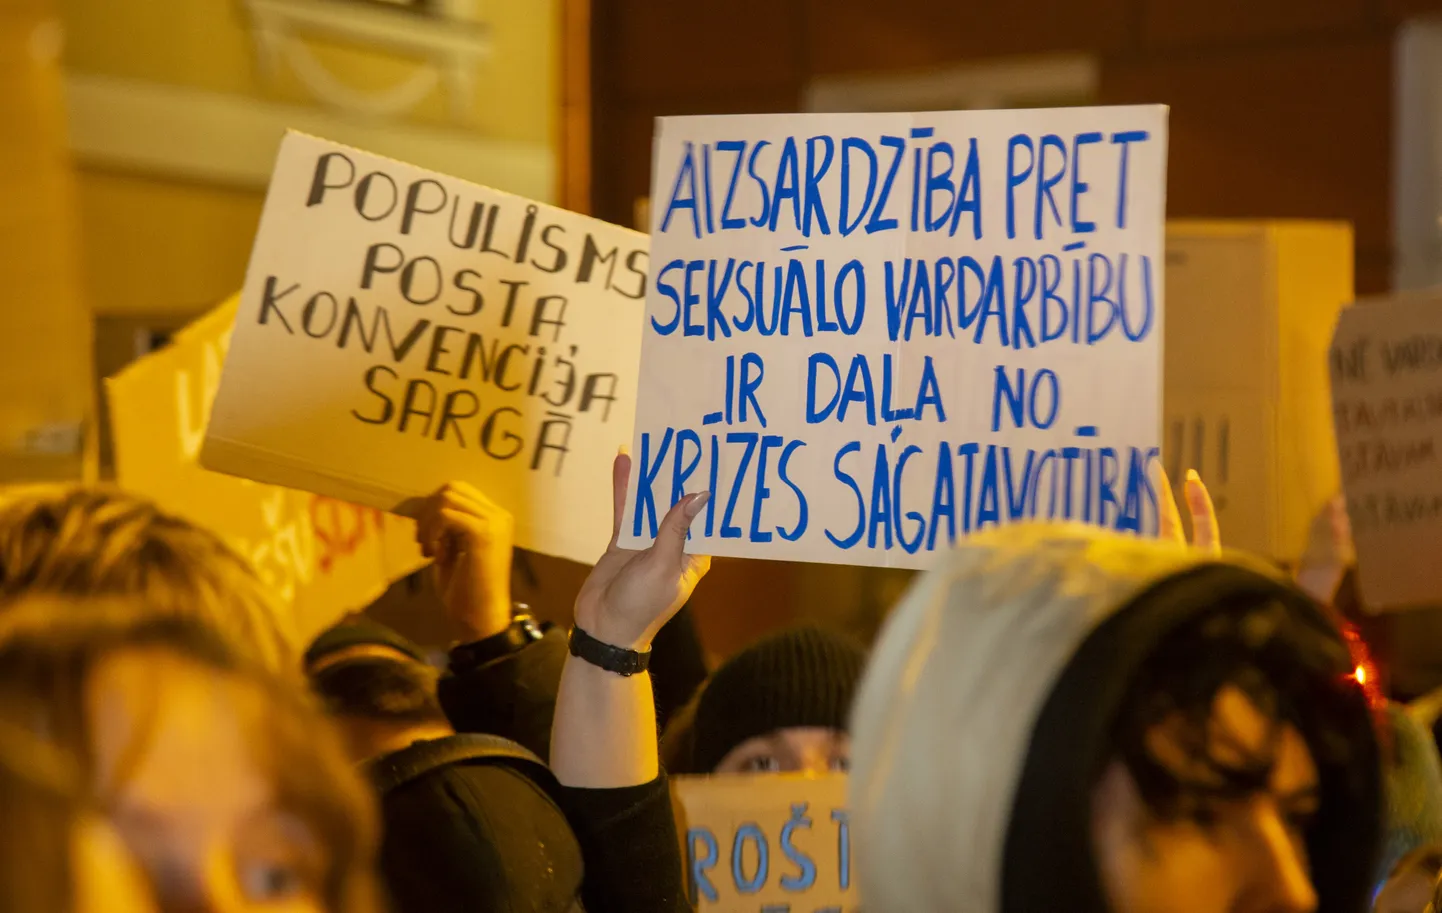 POPULISMS
POSTA,
KONVENCIJA
SARGĀ
AIZSARDZĪBA PRET
SEKSUĀLO VARDARBĪBU
IR DAĻA NO
KRĪZES SAGATAVOTĪBAS
!!!
NĒ
ROŠĪ